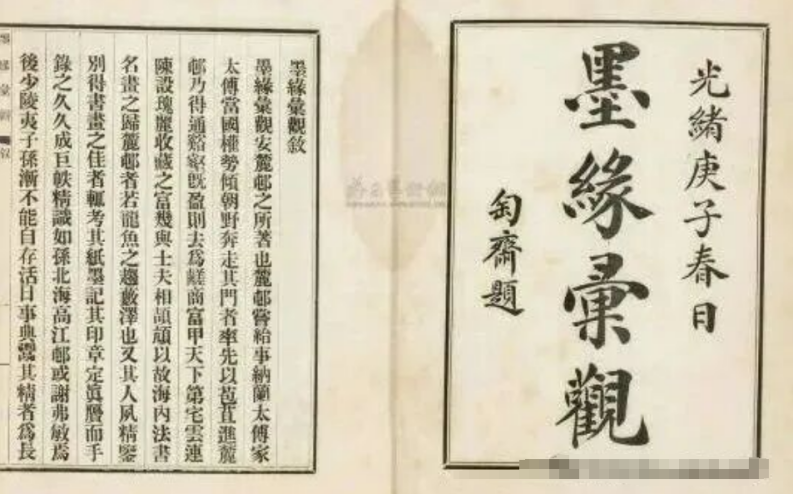 光緒庚子春日
墨緣彙觀
匋齋題
墨緣彙觀敘
墨緣彙觀安麓邨之所著也麓邨嘗給事納蘭太傅家
太傅當國權勢傾朝野奔走其門者率先以苞苴進麓
邨乃得通谿壑旣盈則去爲鹺商富甲天下第宅雲連
陳設瑰麗收藏之富幾與士夫相頡頏以故海內法書
名畫之歸麓邨者若龍魚之趨藪澤也又其人夙精鑒
別得書畫之佳者輒考其紙墨記其印章定眞贋而手
錄之久久成巨帙精識如孫北海高江邨或謝弗敏焉
後少陵夷子孫漸不能自存活日事典鬻其精者爲長
墨緣彙觀 敘